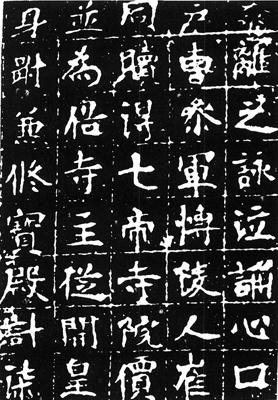 離之詠泣誦心口
戶曹參軍博陵人崔
同贖得七帝寺院價
並為俗寺主從開皇
身兼修寶殿計柒